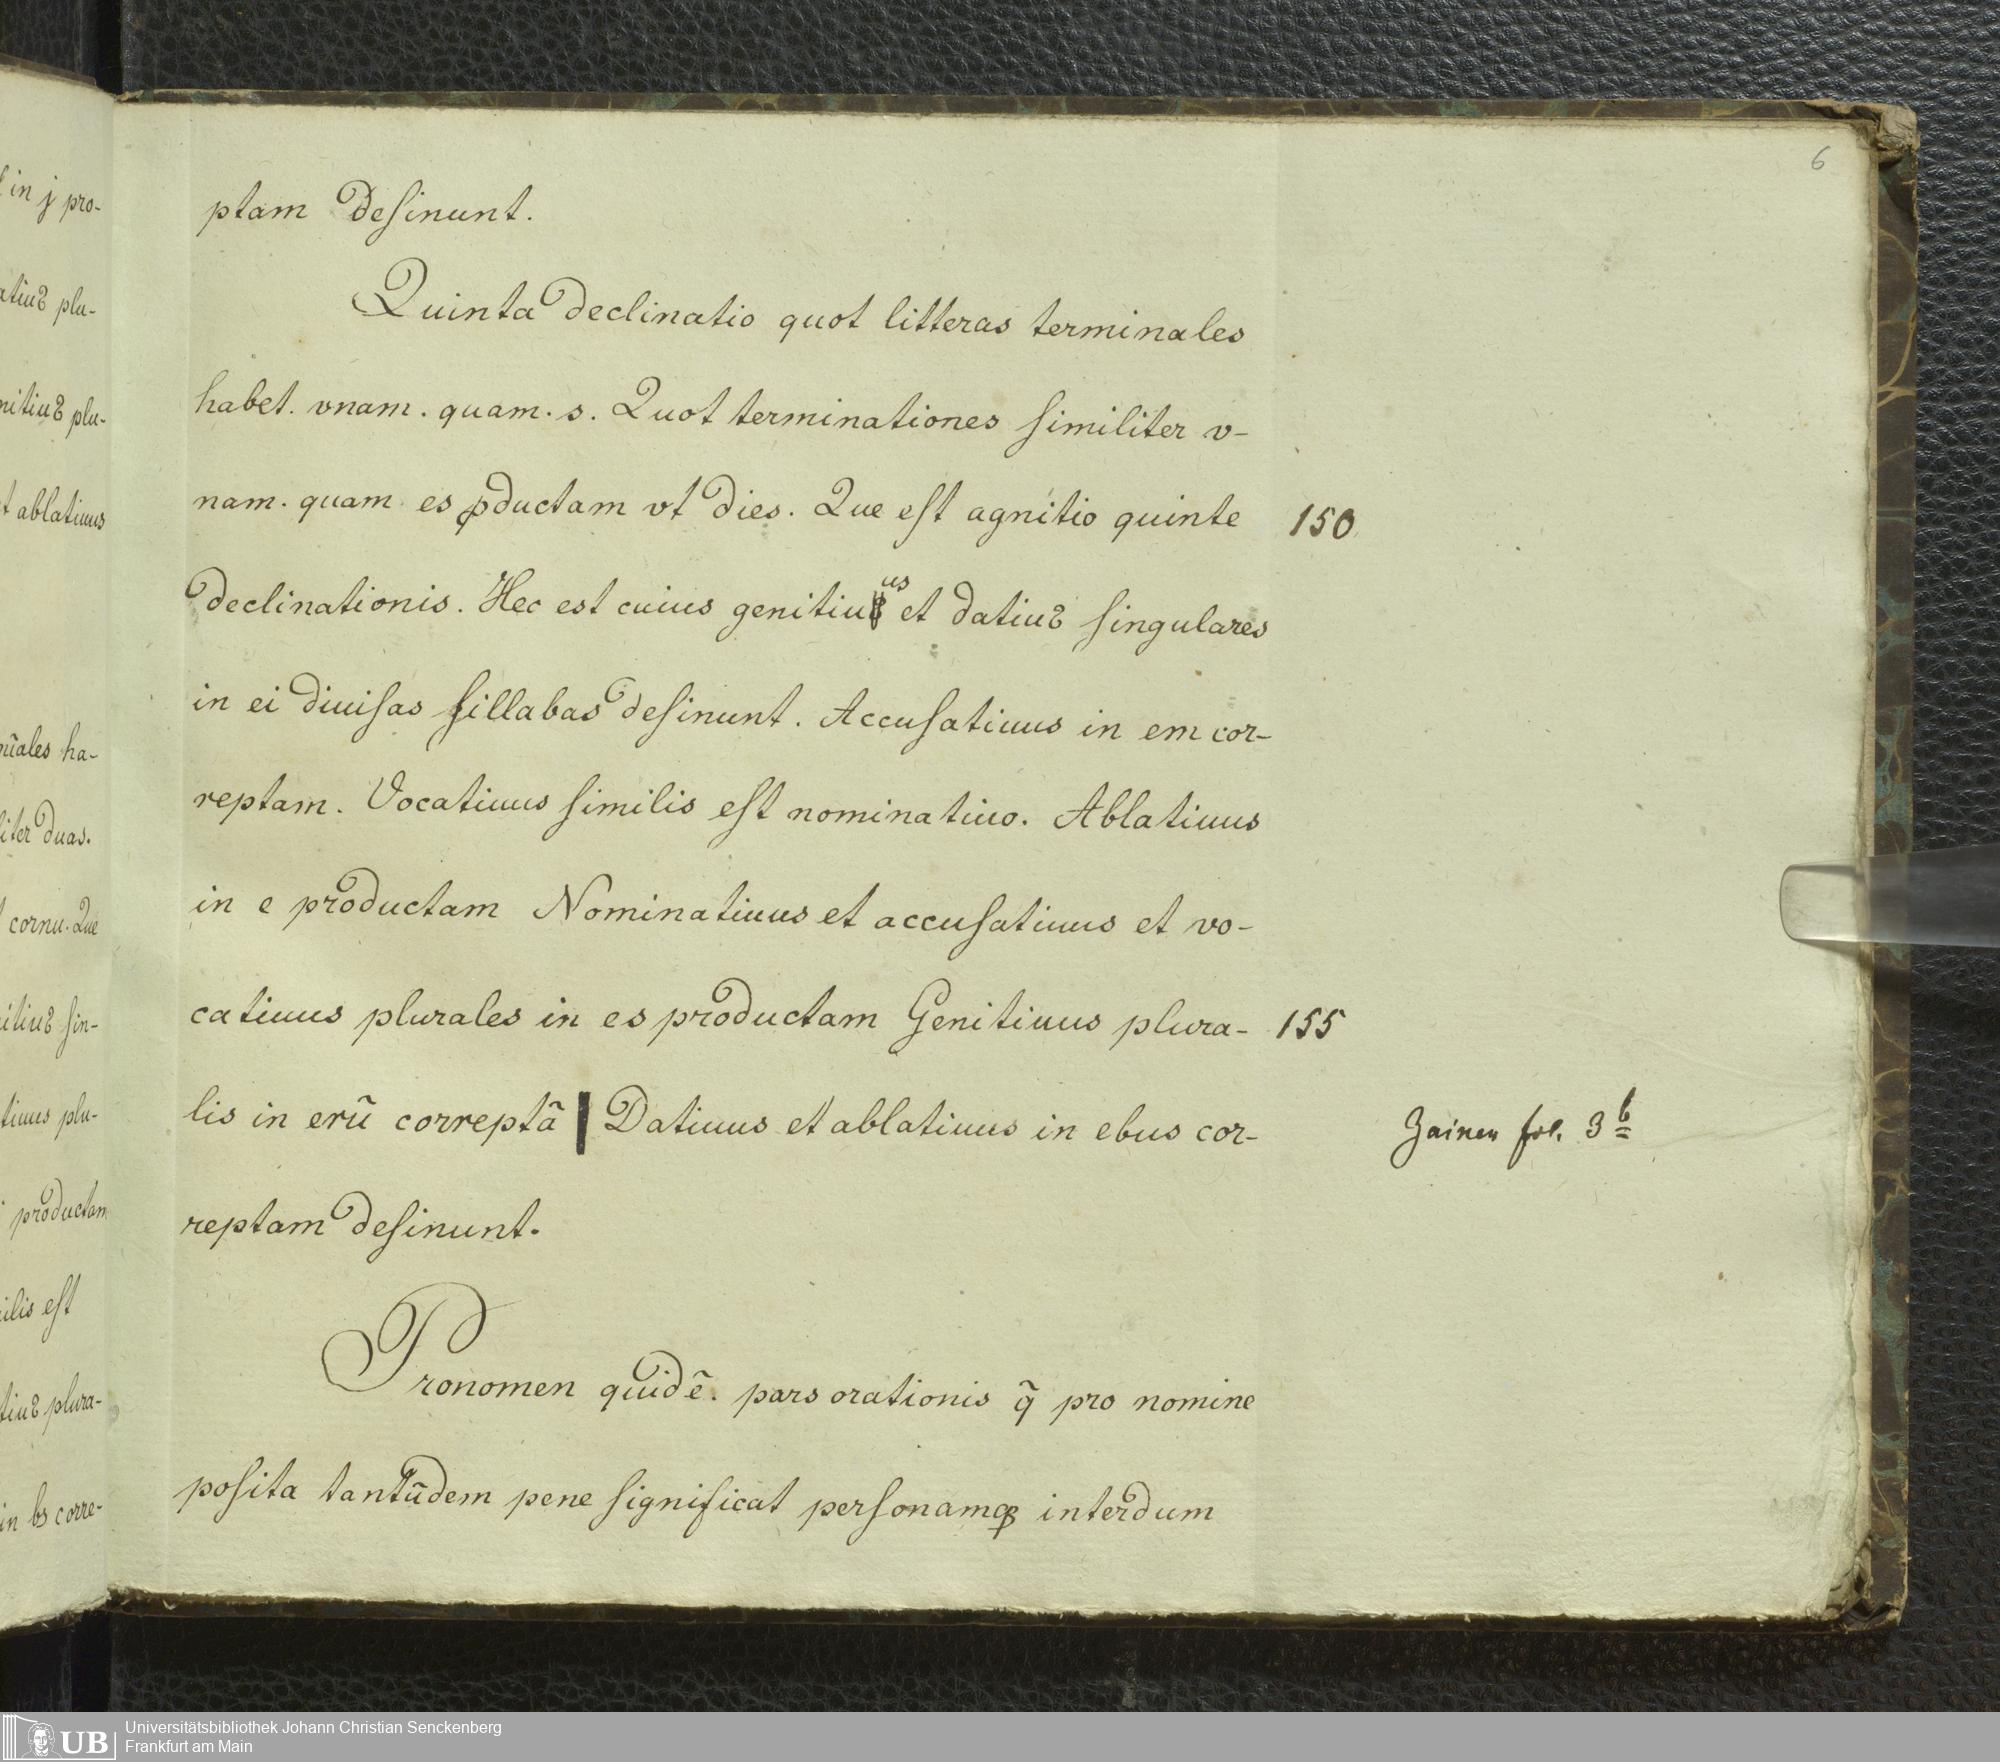 6
ptam desinunt.
Quinta declinatio quot litteras terminales
habet. vnam. quam. s. Quot terminationes similiter v-
nam. quam es ꝓductam vt dies. Que est agnitio quinte 150
declinationis. Hec est cuius genitiuus et datiuꝰ singulares
in ei diuisas sillabas desinunt. Accusatiuus in em cor-
reptam. Vocatiuus similis est nominatiuo. Ablatiuus
in e productam Nominatiuus et accusatiuus et vo-
catiuus plurales in es productam Genitiuus plura- 155
lis in erũ correptã | Datiuus et ablatiuus in ebus cor-
fol. 3b
reptam desinunt.
Pronomen quid ẽ. pars orationis q̃ pro nomine
posita tantũdem pene significat personamqꝫ interdum
in j pro-
atiuꝰ plu-
nitiuꝰ plu-
t ablatiuus
ales ha-
liter duas.
cornu. Que
itiuꝰ sin-
tiuus plu-
productam
ilis est
tiuꝰ plura-
in bꝫ corre-
UB
Universitätsbibliothek Johann Christian Senckenberg
Frankfurt am Main